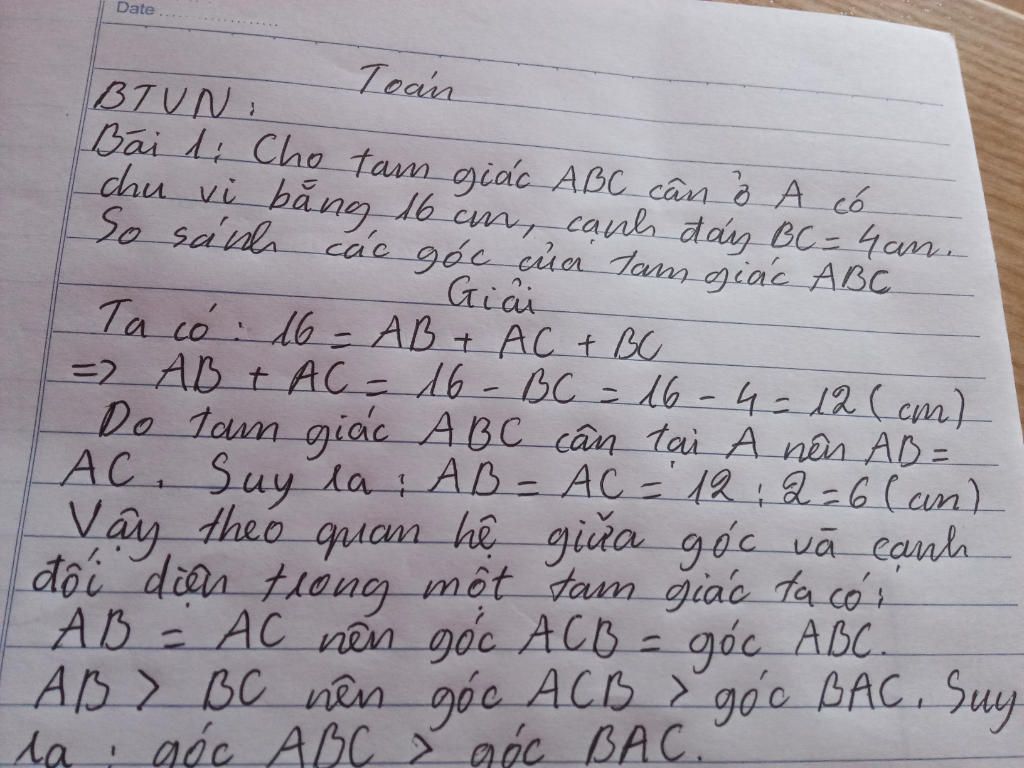 Date
Toán
BTVN:
Bài 1: Cho tam giác ABC cân ở A có
chu vi bằng 16 cm, cạnh đáy BC = 4cm.
So sánh các góc của tam giác ABC
Giải
Ta có: 16 = AB + AC + BC
=> AB + AC = 16 - BC = 16 - 4 = 12 (cm)
Do tam giác ABC cân tại A nên AB =
AC. Suy ra: AB = AC = 12 : 2 = 6 (cm)
Vậy theo quan hệ giữa góc và cạnh
đối diện trong một tam giác ta có:
AB = AC nên góc ACB = góc ABC.
AB > BC nên góc ACB > góc BAC. Suy
ra: góc ABC > góc BAC.